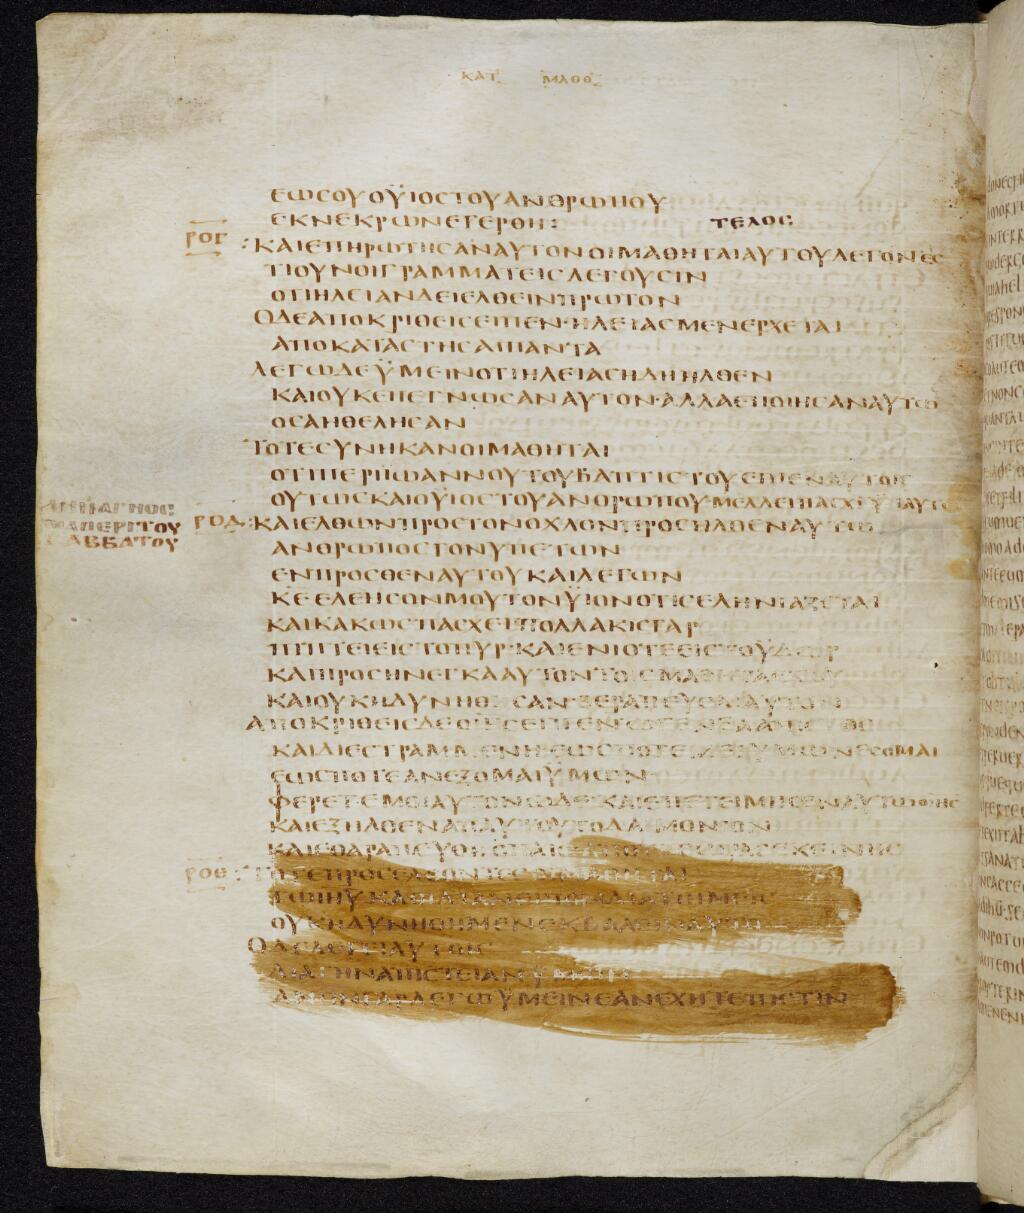 ΚΑΤ ΜΑΘΘ
ΕΩCΟΥ ΟΫΙΟC ΤΟΥ ΑΝΘΡΩΠΟΥ
ΕΚ ΝΕΚΡΩΝ ΕΓΕΡΘΗ: ΤΕΛΟC
ΡΟΓ :ΚΑΙ ΕΠΗΡΩΤΗCΑΝ ΑΥΤΟΝ ΟΙ ΜΑΘΗΤΑΙ ΑΥΤΟΥ ΛΕΓΟΝΤΕC
ΤΙ ΟΥΝ ΟΙ ΓΡΑΜΜΑΤΕΙC ΛΕΓΟΥCΙΝ
ΟΤΙ ΗΛΕΙΑΝ ΔΕΙ ΕΛΘΕΙΝ ΠΡΩΤΟΝ
Ο ΔΕ ΑΠΟΚΡΙΘΕΙC ΕΙΠΕΝ· ΗΛΕΙΑC ΜΕΝ ΕΡΧΕΤΑΙ
ΑΠΟΚΑΤΑCΤΗCΑΙ ΠΑΝΤΑ
ΛΕΓΩ ΔΕ ΫΜΕΙΝ ΟΤΙ ΗΛΕΙΑC ΗΔΗ ΗΛΘΕΝ
ΚΑΙ ΟΥΚ ΕΠΕΓΝΩCΑΝ ΑΥΤΟΝ· ΑΛΛΑ ΕΠΟΙΗCΑΝ ΑΥΤΩ
ΟCΑ ΗΘΕΛΗCΑΝ
ΤΟΤΕ CΥΝΗΚΑΝ ΟΙ ΜΑΘΗΤΑΙ
ΟΤΙ ΠΕΡΙ ΪΩΑΝΝΟΥ ΤΟΥ ΒΑΠΤΙCΤΟΥ ΕΙΠΕΝ ΑΥΤΟΙC
ΟΥΤΩC ΚΑΙ ΟΫΙΟC ΤΟΥ ΑΝΘΡΩΠΟΥ ΜΕΛΛΕΙ ΠΑCΧΕΙ
CΑΒΒΑΤΟΥ
ΡΟΔ :ΚΑΙ ΕΛΘΩΝ ΠΡΟC ΤΟΝ ΟΧΛΟΝ ΠΡΟCΗΛΘΕΝ ΑΥΤΩ
ΑΝΘΡΩΠΟC ΓΟΝΥΠΕΤΩΝ
ΕΝΠΡΟCΘΕΝ ΑΥΤΟΥ ΚΑΙ ΛΕΓΩΝ
ΚΕ ΕΛΕΗCΟΝ ΜΟΥ ΤΟΝ ΫΙΟΝ ΟΤΙ CΕΛΗΝΙΑΖΕΤΑΙ
ΚΑΙ ΚΑΚΩC ΠΑCΧΕΙ ΠΟΛΛΑΚΙC ΓΑΡ
ΠΙΠΤΕΙ ΕΙC ΤΟ ΠΥΡ· ΚΑΙ ΕΝΙΟΤΕ ΕΙC ΤΟ ΫΔΩΡ
ΚΑΙ ΠΡΟCΗΝΕΓΚΑ ΑΥΤΟΝ ΤΟΙC ΜΑΘΗΤΑΙC CΟΥ
ΚΑΙ ΟΥΚ ΗΔΥΝΗΘΗCΑΝ ΘΕΡΑΠΕΥCΑΙ ΑΥΤΟΝ
ΑΠΟΚΡΙΘΕΙC ΔΕ Ο ΙΗC ΕΙΠΕΝ Ω ΓΕΝΕΑ
ΚΑΙ ΔΙΕCΤΡΑΜΜΕΝΗ· ΕΩC ΠΟΤΕ ΜΕΘ ΫΜΩΝ ΕCΟΜΑΙ
ΕΩC ΠΟΤΕ ΑΝΕΞΟΜΑΙ ΫΜΩΝ
ΦΕΡΕΤΕ ΜΟΙ ΑΥΤΟΝ ΩΔΕ· ΚΑΙ ΕΠΕΤΕΙΜΗCΕΝ ΑΥΤΩ Ο ΙΗC
ΚΑΙ ΕΞΗΛΘΕΝ ΑΠ ΑΥΤΟΥ ΤΟ ΔΑΙΜΟΝΙΟΝ
ΚΑΙ ΕΘΑΡΑΠΕΥΘΗ Ο ΠΑΙC ΑΠΟ ΤΗC ΩΡΑC ΕΚΕΙΝΗC
ΡΟΕ :ΤΟΤΕ ΠΡΟCΕΛΘΟΝΤΕC ΟΙ ΜΑΘΗΤΑΙ
ΤΩ ΙΗΥ ΚΑΘ ΙΔΙΑΝ ΕΙΠΟΝ ΔΙΑ ΤΙ ΗΜΕΙC
ΟΥΚ ΗΔΥΝΗΘΗΜΕΝ ΕΚΒΑΛΕΙΝ ΑΥΤΟ
Ο ΔΕ ΛΕΓΕΙ ΑΥΤΟΙC
ΔΙΑ ΤΗΝ ΑΠΙCΤΕΙΑΝ ΫΜΩΝ
ΑΜΗΝ ΓΑΡ ΛΕΓΩ ΫΜΕΙΝ ΕΑΝ ΕΧΗΤΕ ΠΙCΤΙΝ